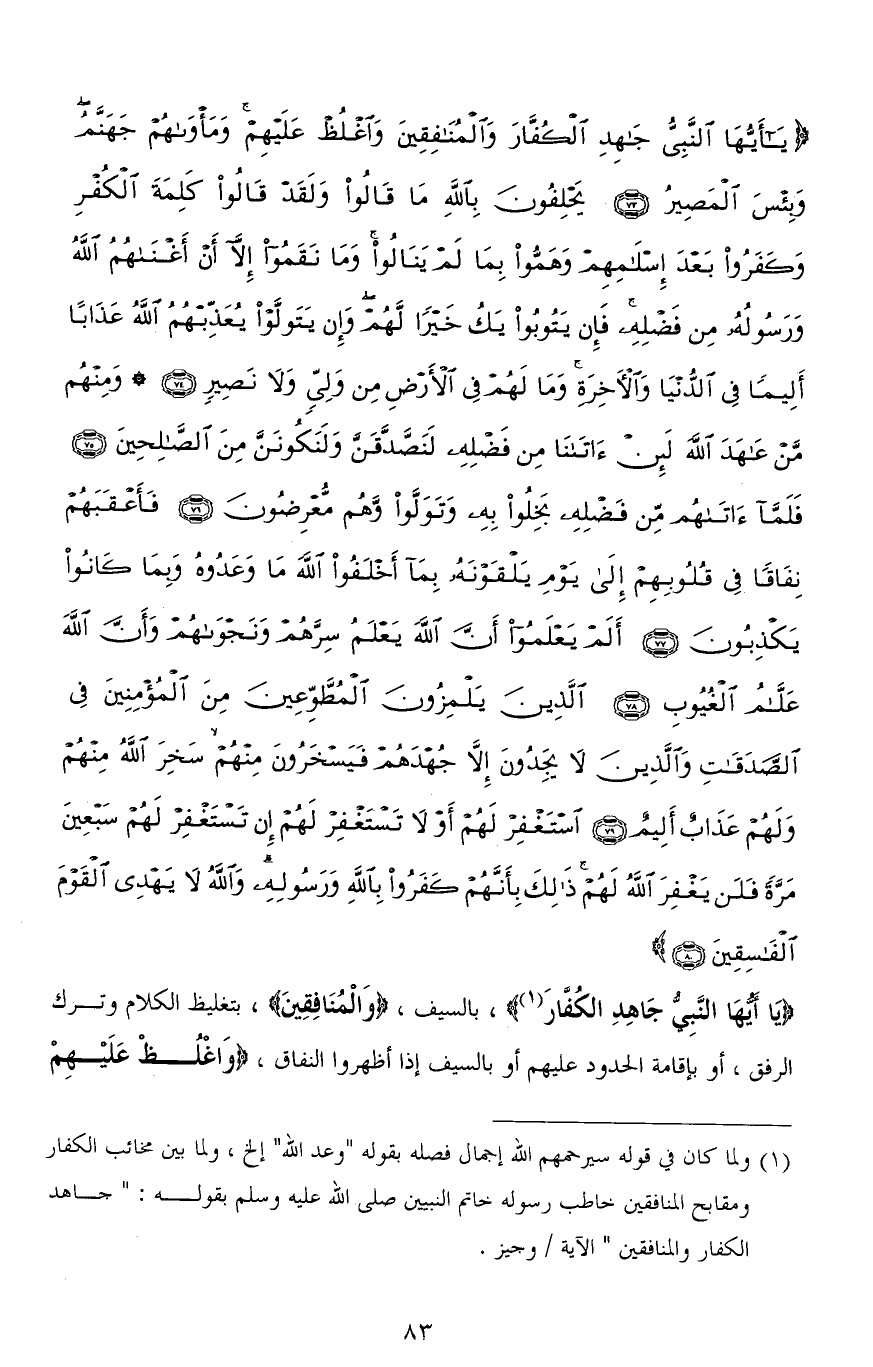 ﴿ يَـٰٓأَيُّهَا ٱلنَّبِىُّ جَـٰهِدِ ٱلْكُفَّارَ وَٱلْمُنَـٰفِقِينَ وَٱغْلُظْ عَلَيْهِمْ ۚ وَمَأْوَىٰهُمْ جَهَنَّمُ ۖ
وَبِئْسَ ٱلْمَصِيرُ ﴿٧٣﴾ يَحْلِفُونَ بِٱللَّهِ مَا قَالُوا۟ وَلَقَدْ قَالُوا۟ كَلِمَةَ ٱلْكُفْرِ
وَكَفَرُوا۟ بَعْدَ إِسْلَـٰمِهِمْ وَهَمُّوا۟ بِمَا لَمْ يَنَالُوا۟ ۚ وَمَا نَقَمُوٓا۟ إِلَّآ أَنْ أَغْنَىٰهُمُ ٱللَّهُ
وَرَسُولُهُۥ مِن فَضْلِهِۦ ۚ فَإِن يَتُوبُوا۟ يَكُ خَيْرًا لَّهُمْ ۖ وَإِن يَتَوَلَّوْا۟ يُعَذِّبْهُمُ ٱللَّهُ عَذَابًا
أَلِيمًا فِى ٱلدُّنْيَا وَٱلْـَٔاخِرَةِ ۚ وَمَا لَهُمْ فِى ٱلْأَرْضِ مِن وَلِىٍّ وَلَا نَصِيرٍ ﴿٧٤﴾ ۞ وَمِنْهُم
مَّنْ عَـٰهَدَ ٱللَّهَ لَئِنْ ءَاتَىٰنَا مِن فَضْلِهِۦ لَنَصَّدَّقَنَّ وَلَنَكُونَنَّ مِنَ ٱلصَّـٰلِحِينَ ﴿٧٥﴾
فَلَمَّآ ءَاتَىٰهُم مِّن فَضْلِهِۦ بَخِلُوا۟ بِهِۦ وَتَوَلَّوا۟ وَّهُم مُّعْرِضُونَ ﴿٧٦﴾ فَأَعْقَبَهُمْ
نِفَاقًا فِى قُلُوبِهِمْ إِلَىٰ يَوْمِ يَلْقَوْنَهُۥ بِمَآ أَخْلَفُوا۟ ٱللَّهَ مَا وَعَدُوهُ وَبِمَا كَانُوا۟
يَكْذِبُونَ ﴿٧٧﴾ أَلَمْ يَعْلَمُوٓا۟ أَنَّ ٱللَّهَ يَعْلَمُ سِرَّهُمْ وَنَجْوَىٰهُمْ وَأَنَّ ٱللَّهَ
عَلَّـٰمُ ٱلْغُيُوبِ ﴿٧٨﴾ ٱلَّذِينَ يَلْمِزُونَ ٱلْمُطَّوِّعِينَ مِنَ ٱلْمُؤْمِنِينَ فِى
ٱلصَّدَقَـٰتِ وَٱلَّذِينَ لَا يَجِدُونَ إِلَّا جُهْدَهُمْ فَيَسْخَرُونَ مِنْهُمْ ۙ سَخِرَ ٱللَّهُ مِنْهُمْ
وَلَهُمْ عَذَابٌ أَلِيمٌ ﴿٧٩﴾ ٱسْتَغْفِرْ لَهُمْ أَوْ لَا تَسْتَغْفِرْ لَهُمْ إِن تَسْتَغْفِرْ لَهُمْ سَبْعِينَ
مَرَّةً فَلَن يَغْفِرَ ٱللَّهُ لَهُمْ ۚ ذَٰلِكَ بِأَنَّهُمْ كَفَرُوا۟ بِٱللَّهِ وَرَسُولِهِۦ ۗ وَٱللَّهُ لَا يَهْدِى ٱلْقَوْمَ
ٱلْفَـٰسِقِينَ ﴿٨٠﴾ ﴾
﴿يَا أَيُّهَا النَّبِيُّ جَاهِدِ الكُفَّارَ(١)﴾ ، بالسيف ، ﴿وَالْمُنَافِقِينَ﴾ ، بتغليظ الكلام وتـــرك
الرفق ، أو بإقامة الحدود عليهم أو بالسيف إذا أظهروا النفاق ، ﴿وَاغْلُـــظْ عَلَيْـــهِمْ
(١) ولما كان في قوله سيرحمهم الله إجمال فصله بقوله "وعد الله" إلخ ، ولما بين مخائب الكفار
ومقابح المنافقين خاطب رسوله خاتم النبيين صلى الله عليه وسلم بقولـــه : " جـــاهد
الكفار والمنافقين " الآية / وجيز .
٨٣